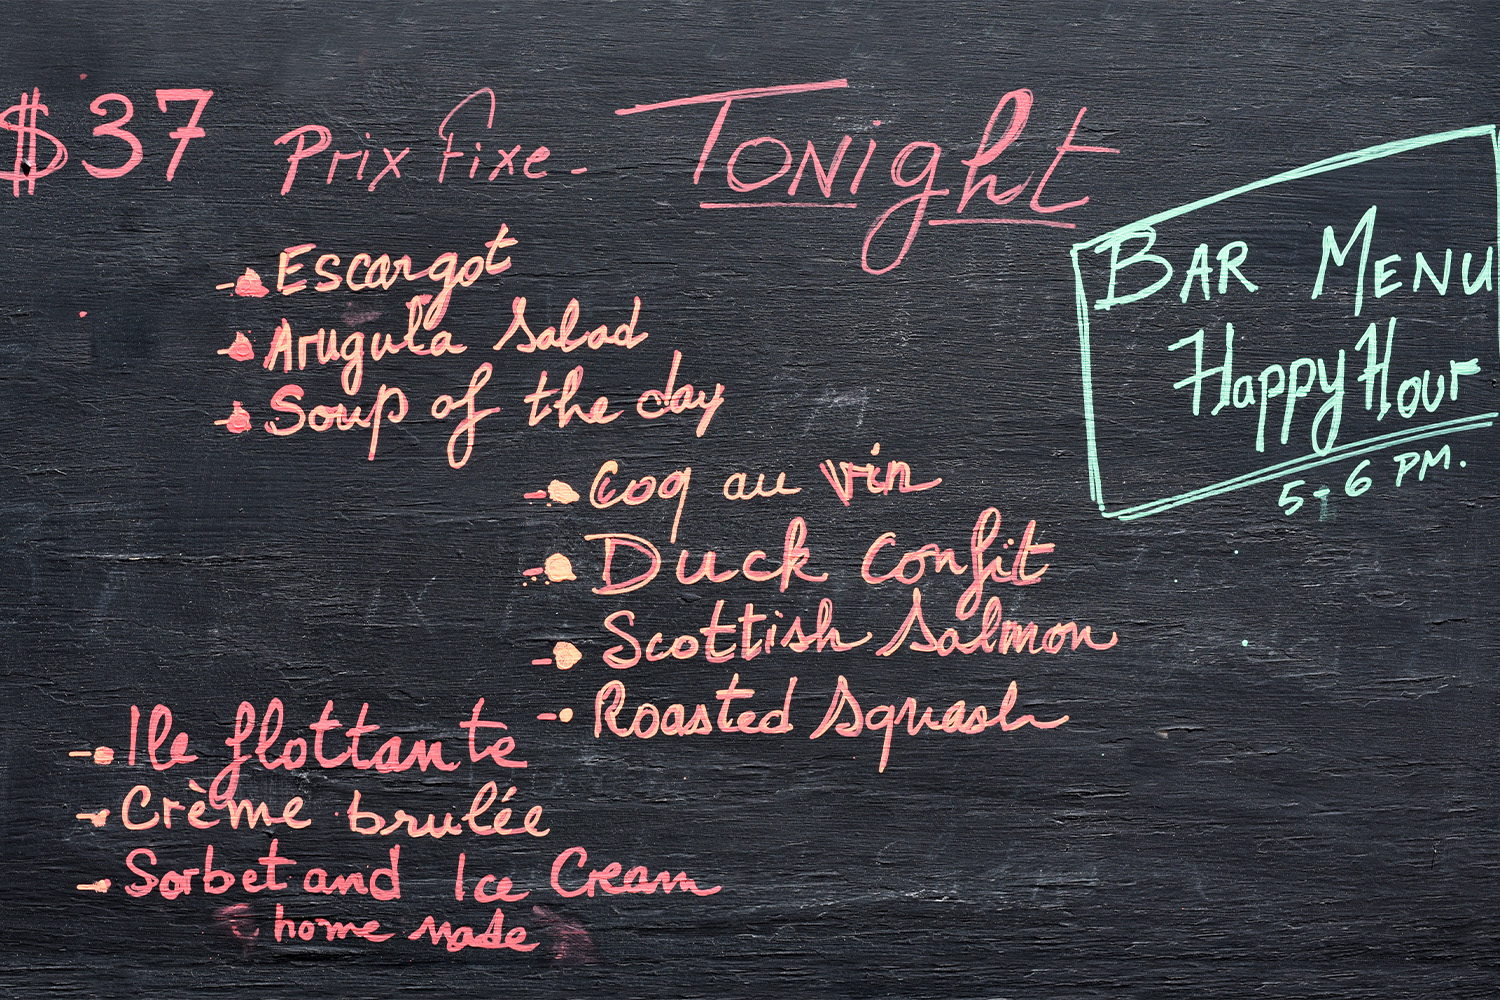 $37 Prix Fixe - Tonight
Escargot
Arugula Salad
Soup of the day
Coq au vin
Duck Confit
Scottish Salmon
Roasted Squash
Ile flottante
Crème brulée
Sorbet and Ice Cream
home made
BAR MENU
Happy Hour
5-6 PM.